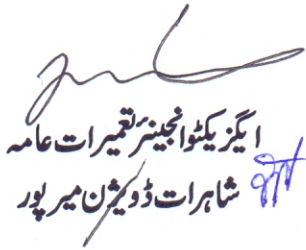 ایگزیکٹو انجینئر تعمیرات عامہ
شاہرات ڈویژن میر پور